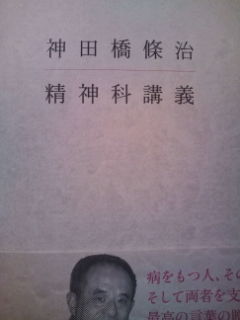 神田橋條治
精神科講義
病をもつ人、その
そして両者を支
最高の言葉の